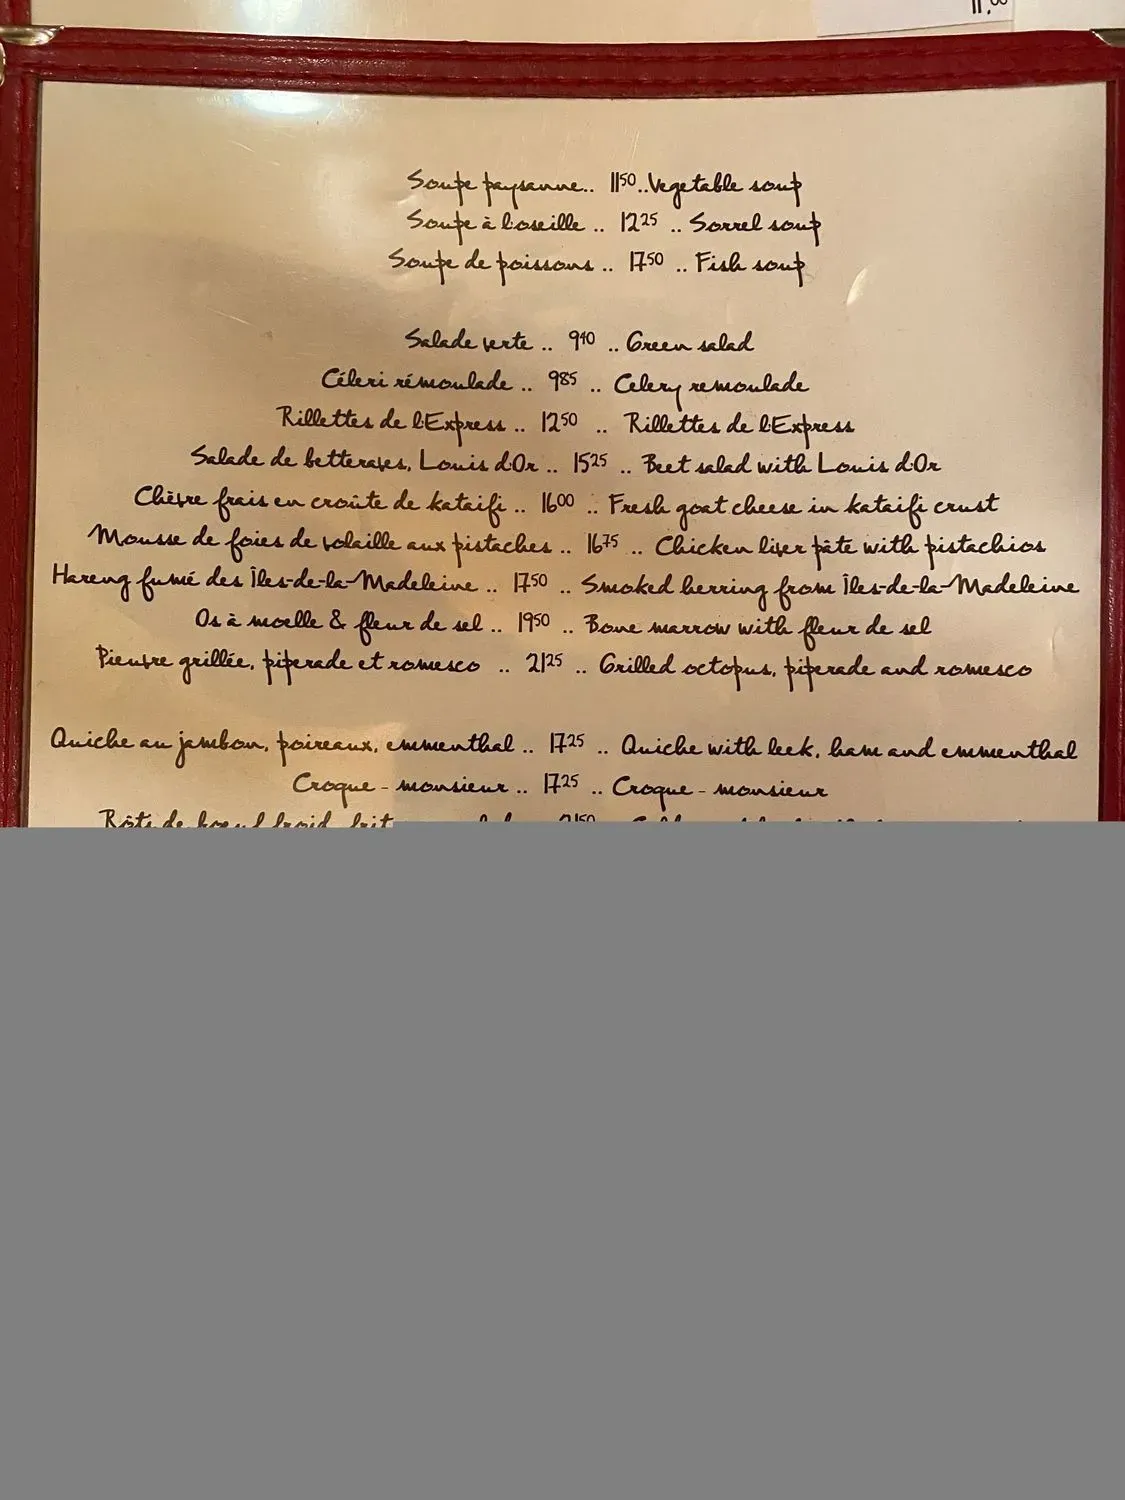 11.00
Soupe paysanne.. 11 50..Vegetable soup
Soupe à l'oseille .. 12 25 .. Sorrel soup
Soupe de poissons .. 17 50 .. Fish soup
Salade verte .. 9 40 .. Green salad
Céleri rémoulade .. 9 85 .. Celery remoulade
Rillettes de l'Express .. 12 50 .. Rillettes de l'Express
Salade de betteraves, Louis d'Or .. 15 25 .. Beet salad with Louis d'Or
Chèvre frais en croûte de kataifi .. 16 00 .. Fresh goat cheese in kataifi crust
Mousse de foies de volaille aux pistaches .. 16 75 .. Chicken liver pâte with pistachios
Hareng fumé des Îles-de-la-Madeleine .. 17 50 .. Smoked herring from Îles-de-la-Madeleine
Os à moelle & fleur de sel .. 19 50 .. Bone marrow with fleur de sel
Pieuvre grillée, piperade et romesco .. 21 25 .. Grilled octopus, piperade and romesco
Quiche au jambon, poireaux, emmenthal .. 17 25 .. Quiche with leek, ham and emmenthal
Croque - monsieur .. 17 25 .. Croque - monsieur
Rôti de boeuf froid, frit